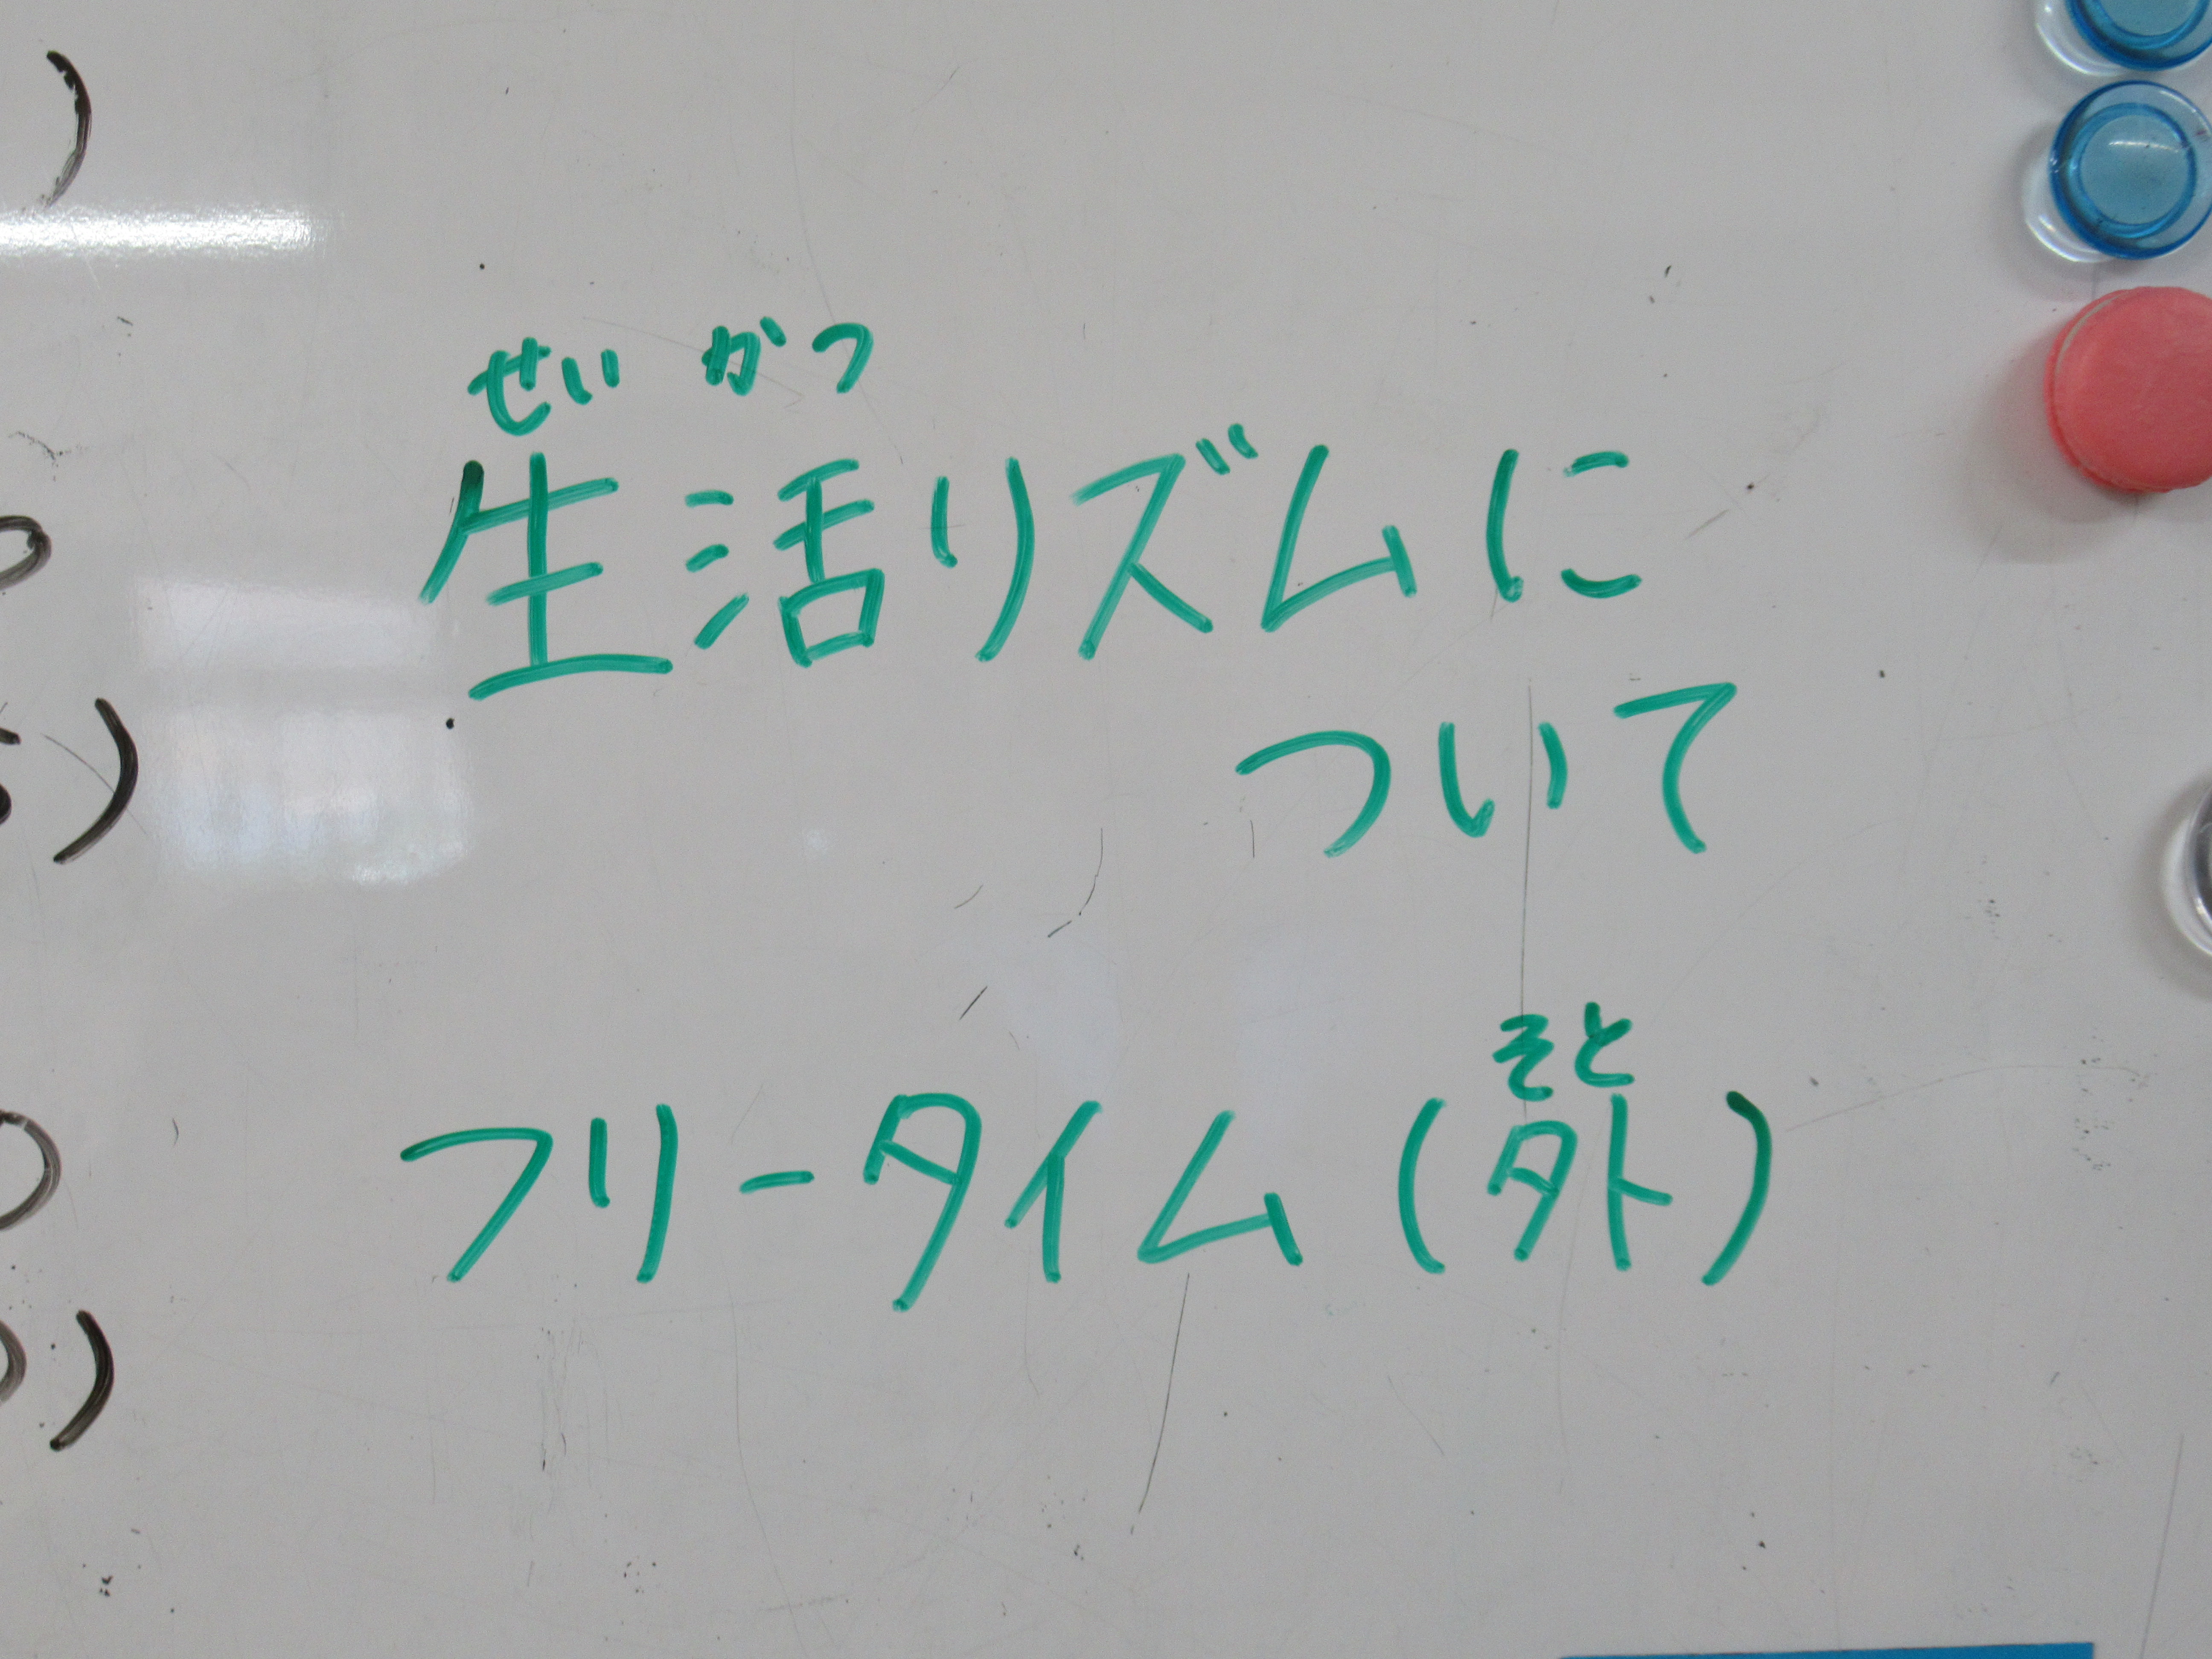 せいかつ
生活リズムに
ついて
そと
フリータイム(外)